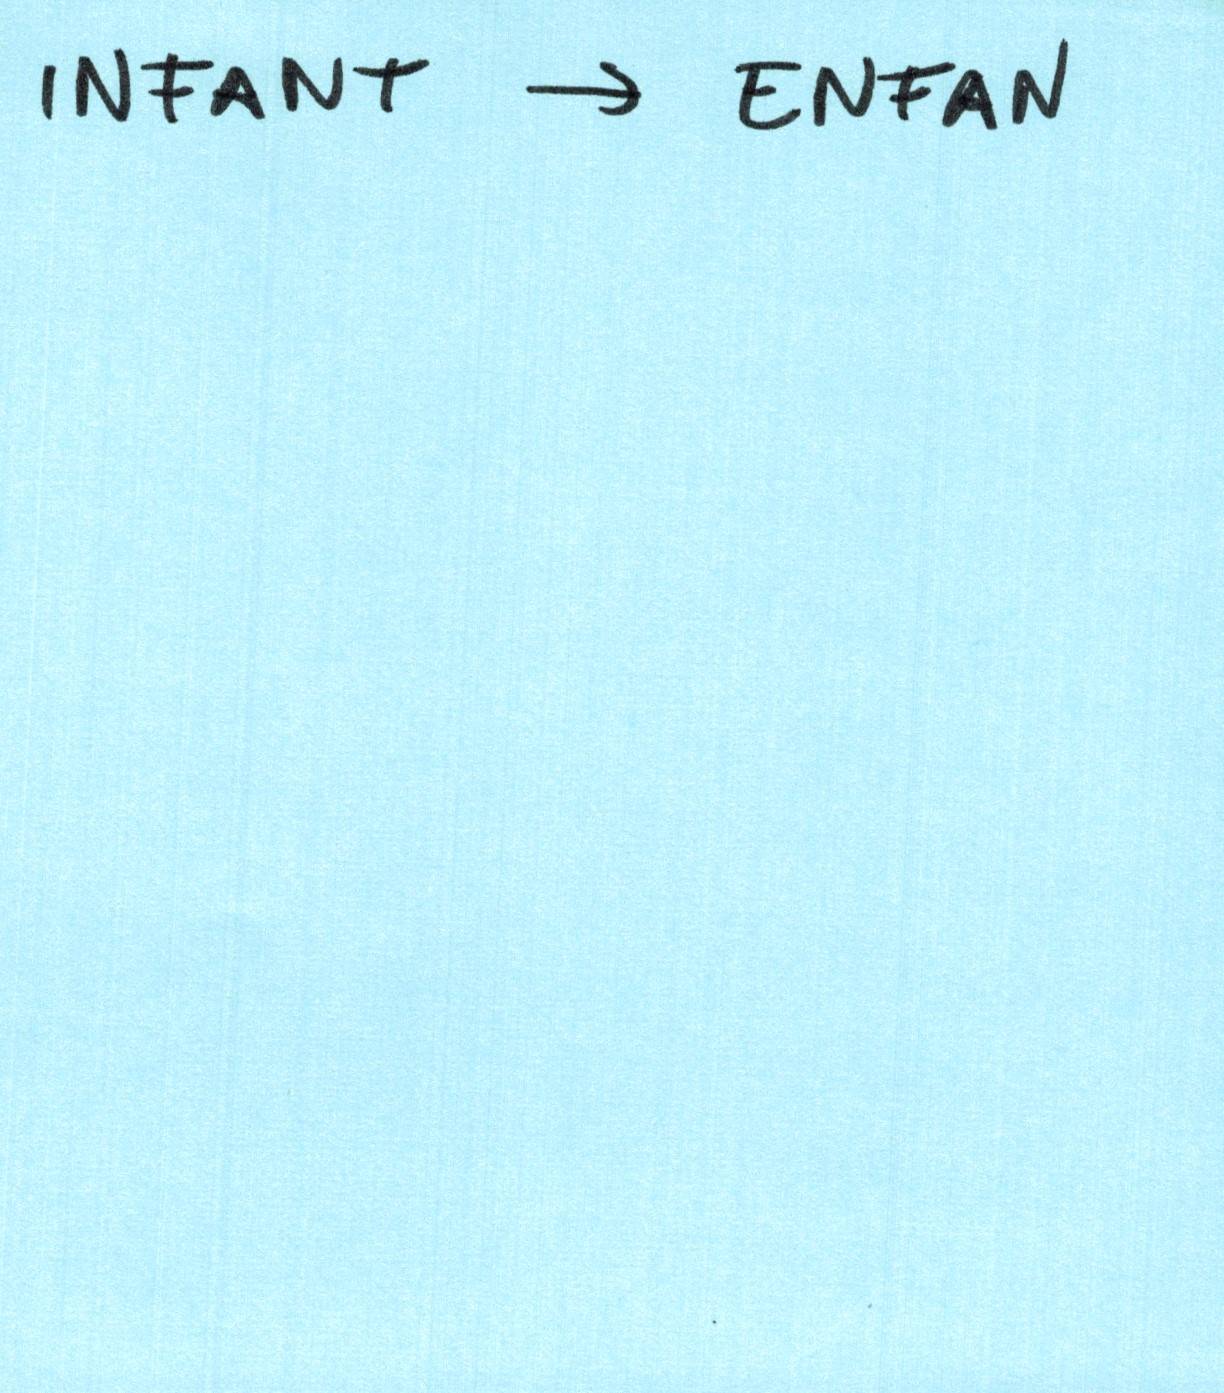 INFANT → ENFAN